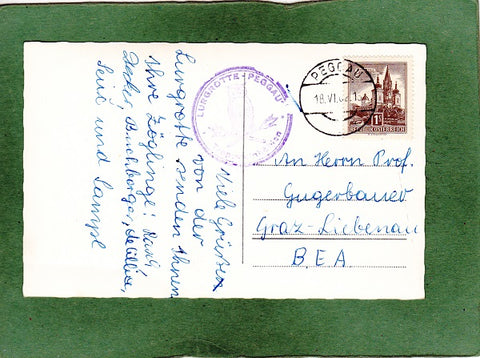 Viele Grüße
von der
Lurgrotte senden Ihnen
Ihre Zöglinge!
Lenz und Lampl
LURGROTTE · PEGGAU
PEGGAU
18.VI.62
REPUBLIK ÖSTERREICH
An Herrn Prof.
Gugerbauer
Graz-Liebenau
B.E.A.